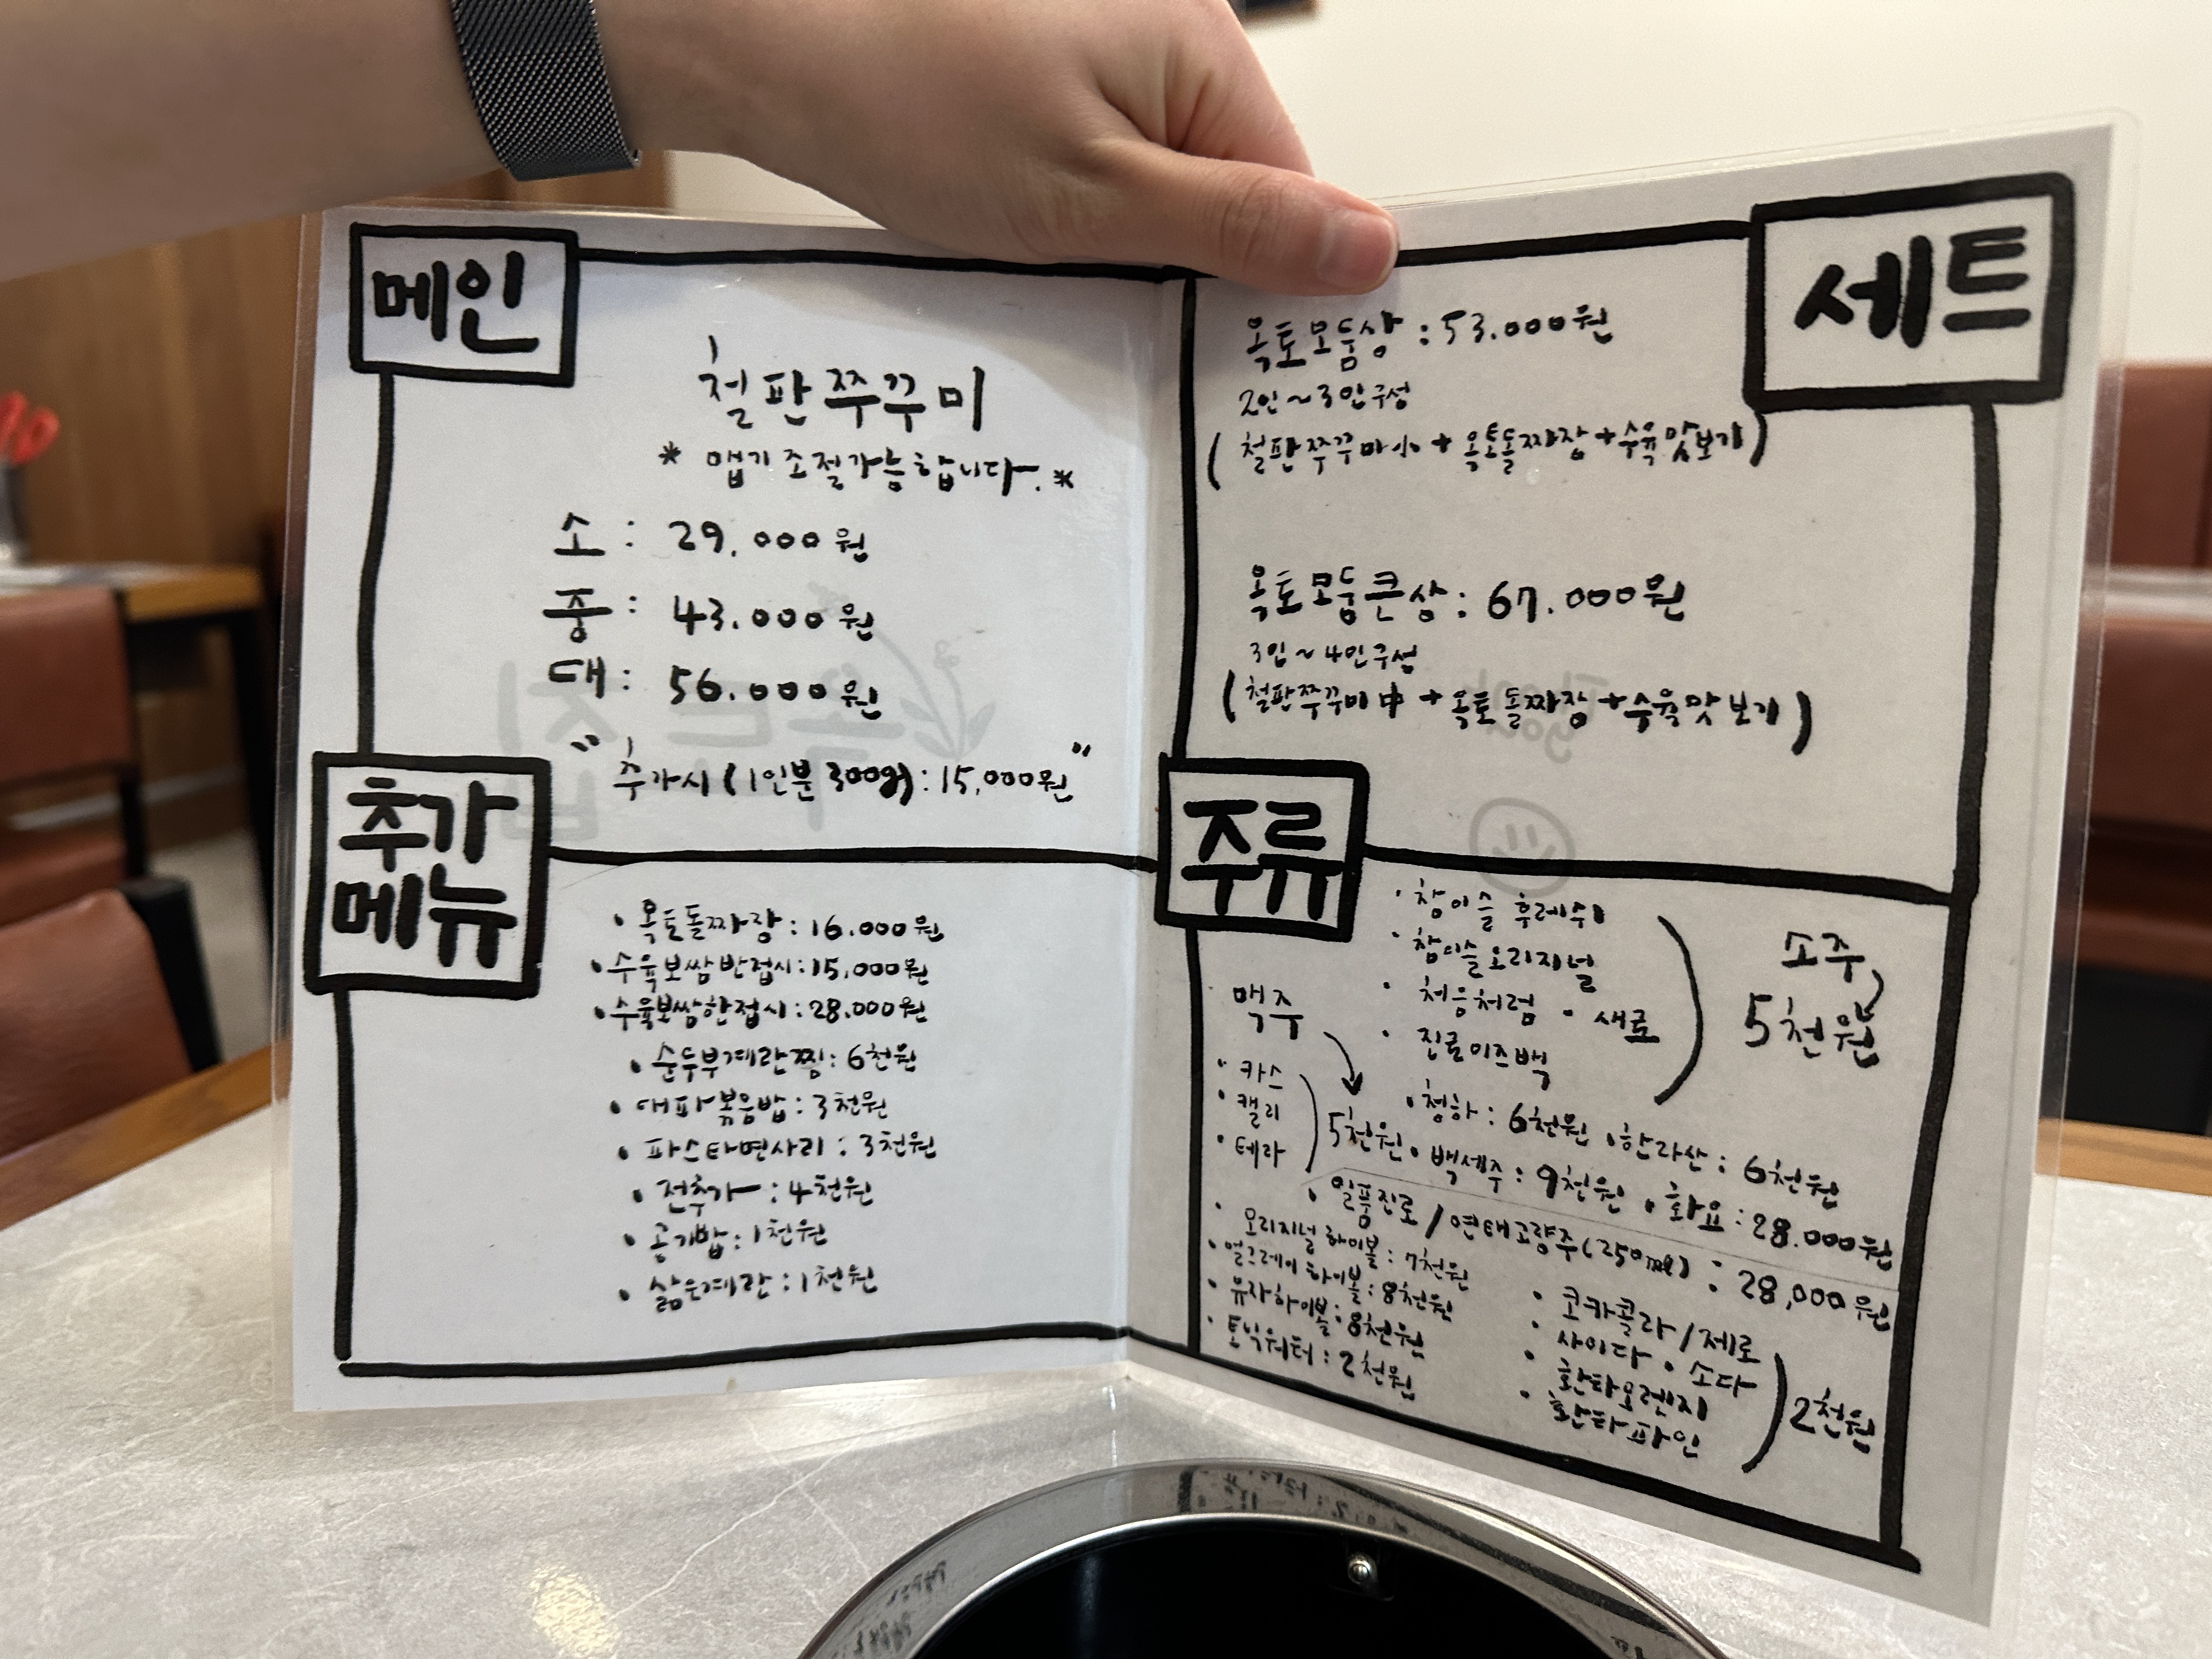 메인
철판쭈꾸미
* 맵기조절가능합니다. *
소 : 29.000원
중 : 43.000원
대 : 56.000원
" 추가시 (1인분 300g) : 15,000원 "
세트
옥토모둠상 : 53.000원
2인~3인구성
(철판쭈꾸미小 + 옥토돌짜장 + 수육맛보기)
옥토모둠큰상 : 67.000원
3인~4인구성
(철판쭈꾸미中 + 옥토돌짜장 + 수육맛보기)
추가
메뉴
• 옥토돌짜장 : 16.000원
• 수육보쌈반접시 : 15,000원
• 수육보쌈한접시 : 28.000원
• 순두부계란찜 : 6천원
• 대파볶음밥 : 3천원
• 파스타면사리 : 3천원
• 전추가 : 4천원
• 공기밥 : 1천원
• 삶은계란 : 1천원
주류
• 참이슬 후레쉬
• 참이슬오리지널
• 처음처럼 • 새로
• 진로이즈백
소주
5천원
맥주
• 카스
• 캘리
• 테라
5천원
• 청하 : 6천원 • 한라산 : 6천원
• 백세주 : 9천원 • 화요 : 28.000원
• 일품진로 / 연태고량주(250ml) : 28,000원
• 오리지널 하이볼 : 7천원
• 얼그레이 하이볼 : 8천원
• 유자하이볼 : 8천원
• 토닉워터 : 2천원
• 코카콜라 / 제로
• 사이다 • 소다
• 환타오렌지
• 환타파인
2천원